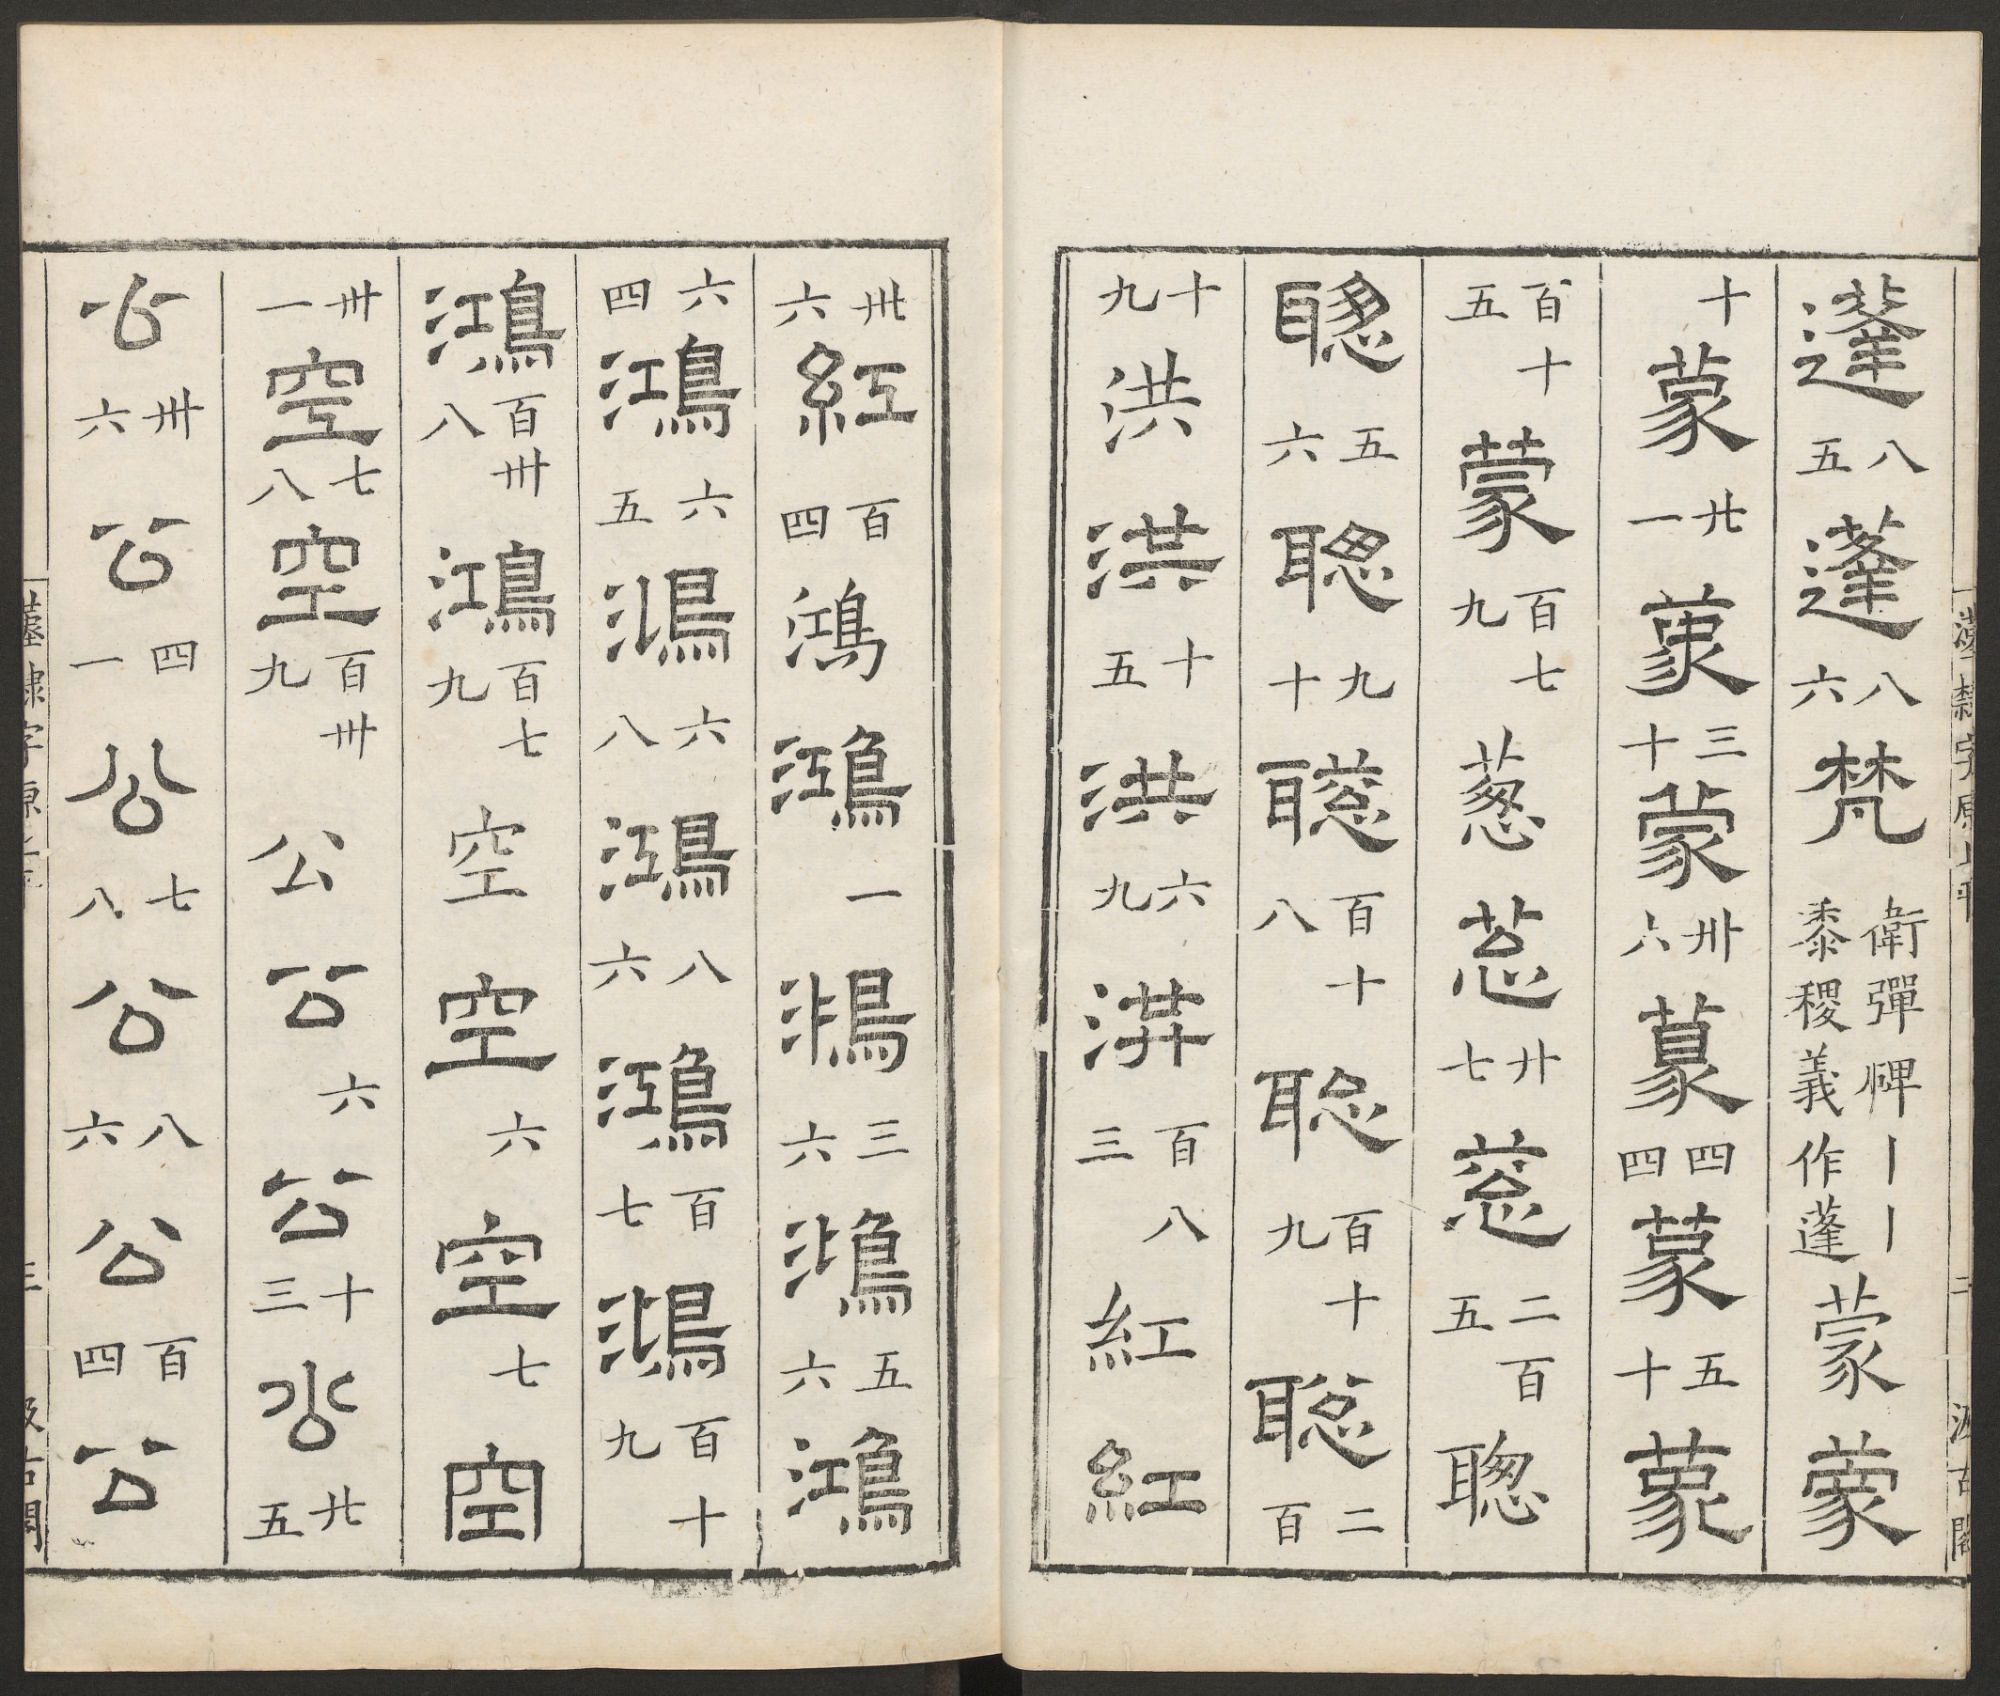 蓬八五蓬八六梵衛彈碑丨丨黍稷義作蓬蒙蒙
十蒙廿一蒙三十蒙卅六蒙四四蒙五十蒙
百十五蒙百七九蔥蔥廿七蔥二百五聰
聰五六聰九十聰百十八聰百十九聰二百
十九洪洪十五洪六九洪百八三紅紅
卌六紅百四鴻鴻一鴻三六鴻五六鴻
六四鴻六五鴻六八鴻八六鴻百七鴻百十九
鴻百卅八鴻百七九空空六空七空
卅一空七八空百卅九公公六公十三公廿五
公卅六公四一公七八公八六公百四公
漢隸字原上平
二
汲古閣
漢隸字原上平
三
汲古閣